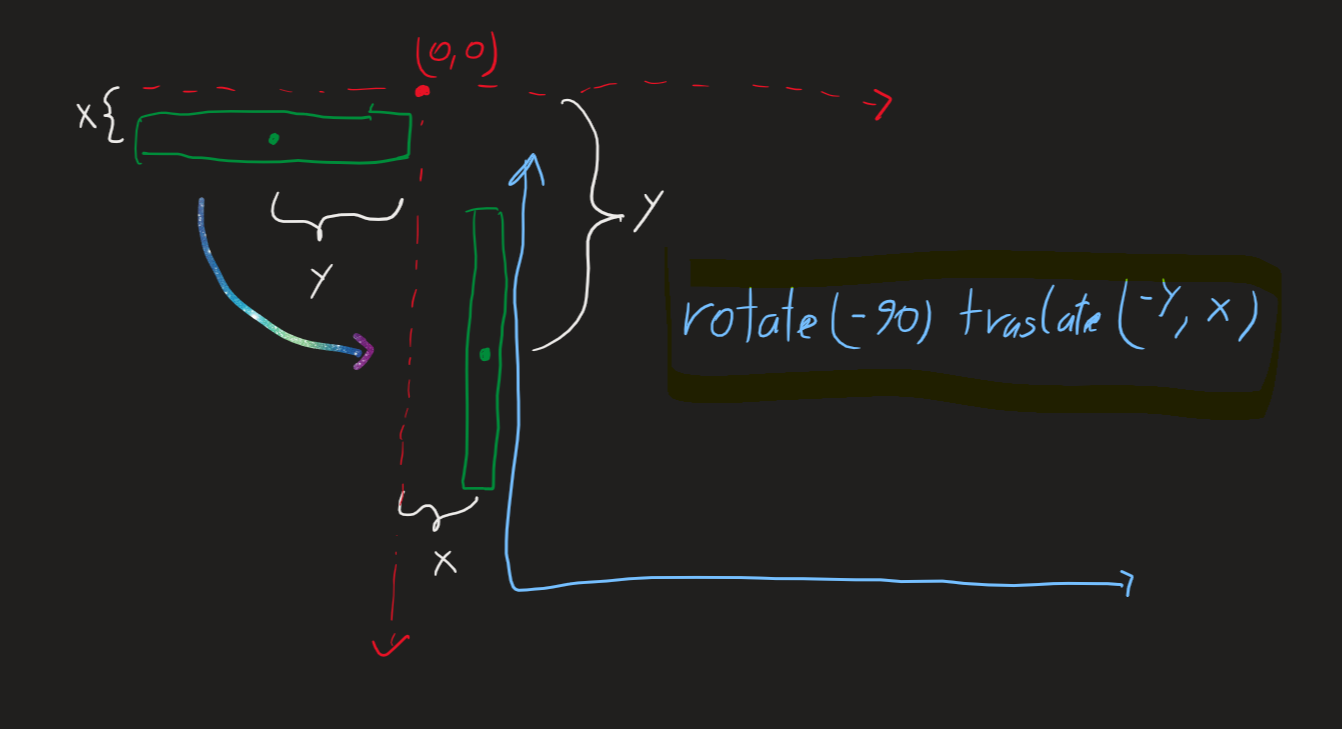 (0,0)
X
Y
Y
rotate(-90) traslate(-Y, X)
X